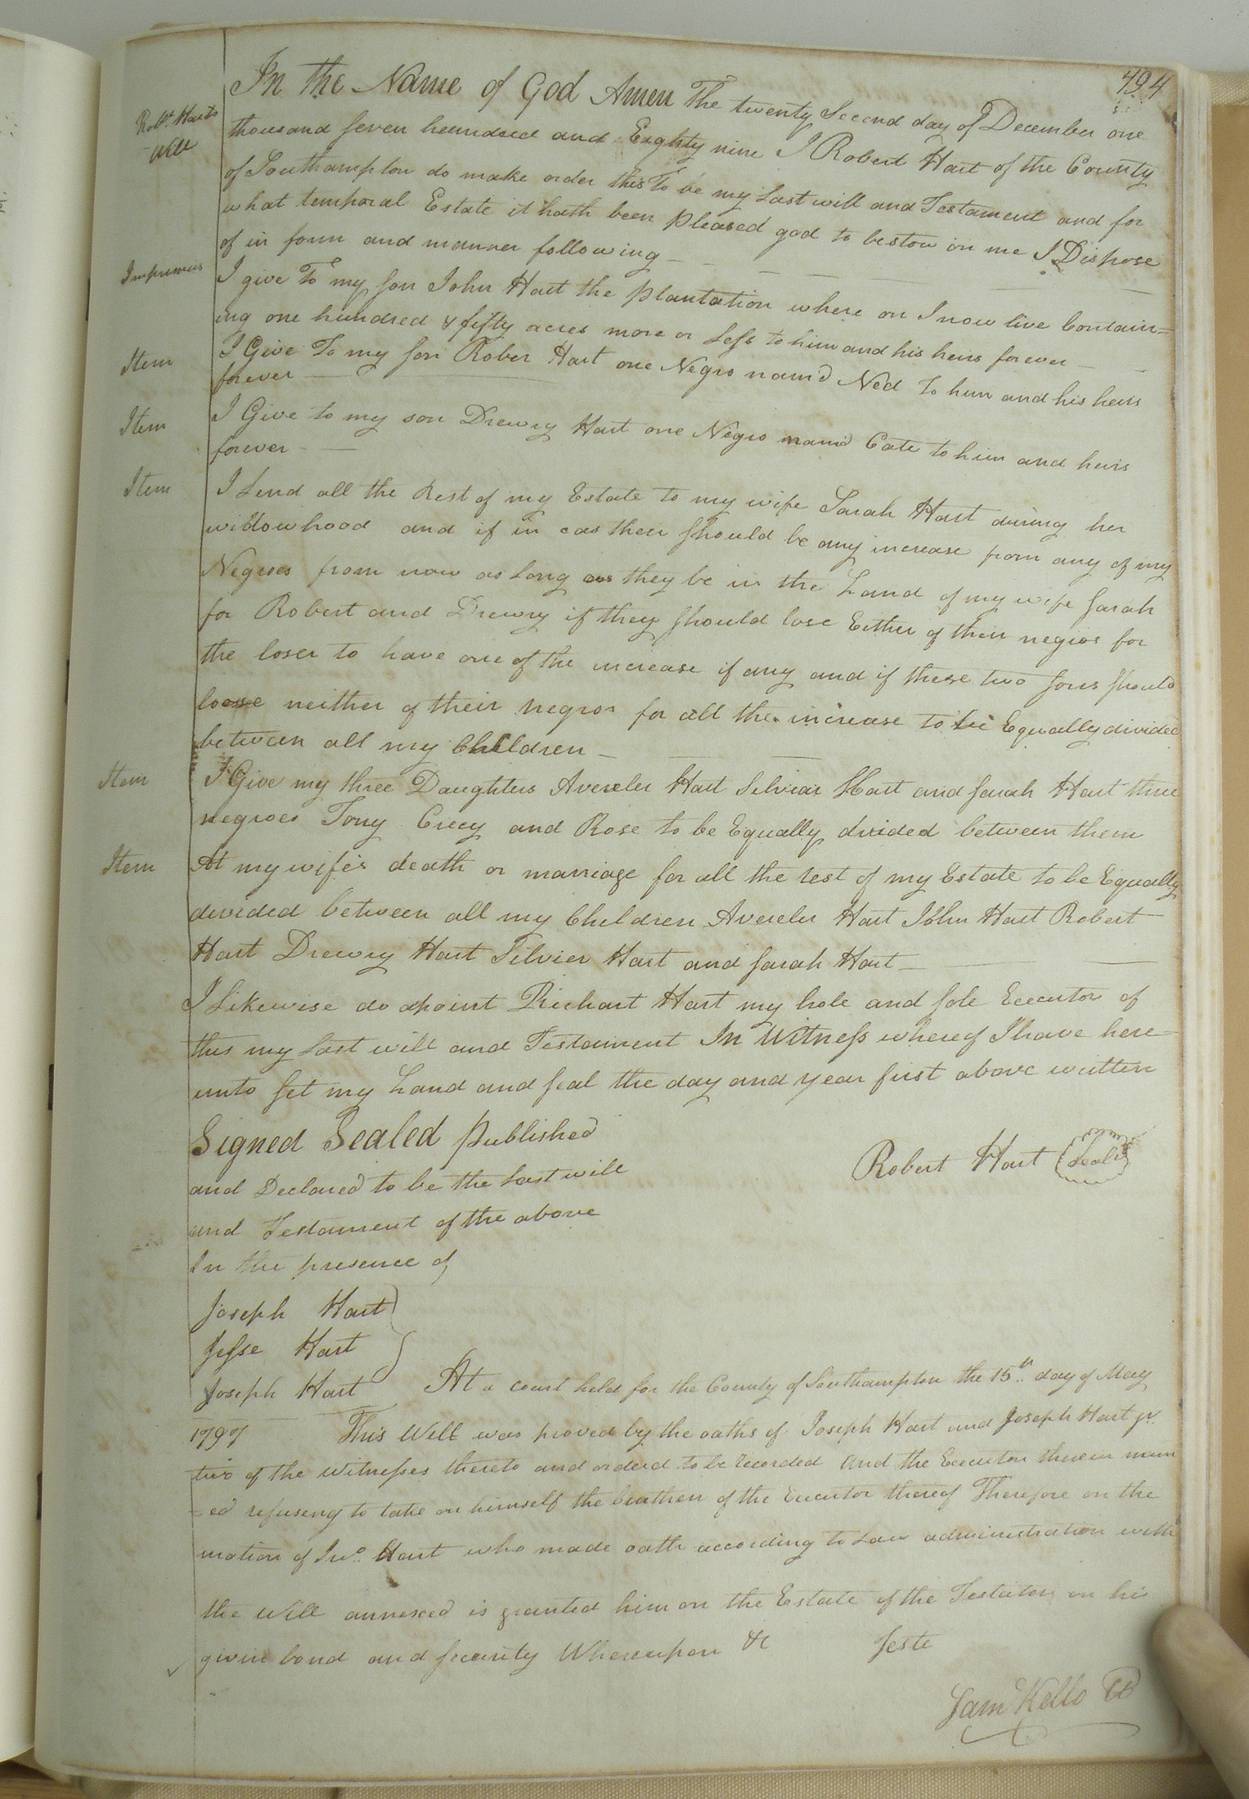 494
Robt. Harts
Will
In the Name of God Amen The twenty Second day of December one
thousand seven hundred and Eighty nine I Robert Hart of the County
of Southampton do make order this To be my Last will and Testament and for
what temporal Estate it hath been Pleased god to bestow on me I Dispose
of in form and manner following
Imprimis I give To my son John Hart the Plantation where on I now live Contain=
ing one hundred & fifty acres more or Less to him and his heirs forever
Item I Give To my son Rober Hart one Negro nam'd Ned To him and his heirs
forever
Item I Give to my son Drewry Hart one Negro nam'd Cate to him and heirs
forever
Item I Lend all the Rest of my Estate to my wife Sarah Hart during her
widdowhood and if in cas their should be any increase from any of my
Negroes from now as Long as they be in the Hand of my wife Sarah
for Robert and Drewry if they should lose Either of their negros for
the loser to have one of the increase if any and if these two sons should
loose neither of their negros for all the increase to be Equally divided
between all my Children
Item I Give my three Daughters Avereler Hart Silvier Hart and Sarah Hart three
negroes Tony Crecy and Rose to be Equally divided between them
Item At my wife's death or marriage for all the rest of my Estate to be Equally
devided between all my Children Avereler Hart John Hart Robert
Hart Drewry Hart Silvier Hart and Sarah Hart
I Likewise do apoint Richart Hart my hole and sole Executor of
this my Last will and Testament In Witness whereof I have here
unto set my Hand and seal the day and year first above written
Signed Sealed Published
and Declared to be the Last will
and Testament of the above
In the presence of
Robert Hart (Seal)
Joseph Hart
Jesse Hart
Joseph Hart
At a court held for the County of Southampton the 15th day of May
1797 This Will was proved by the oaths of Joseph Hart and Joseph Hart jr
two of the Witnesses thereto and orderd to be recorded And the Executor therein nam
=ed refuseing to take on himself the burthen of the Executor thereof Therefore on the
motion of Jno. Hart who made oath according to Law administration with
the Will annexed is granted him on the Estate of the Testator, on his
givin bond and security Whereupon &c
Teste
Saml Kello CC